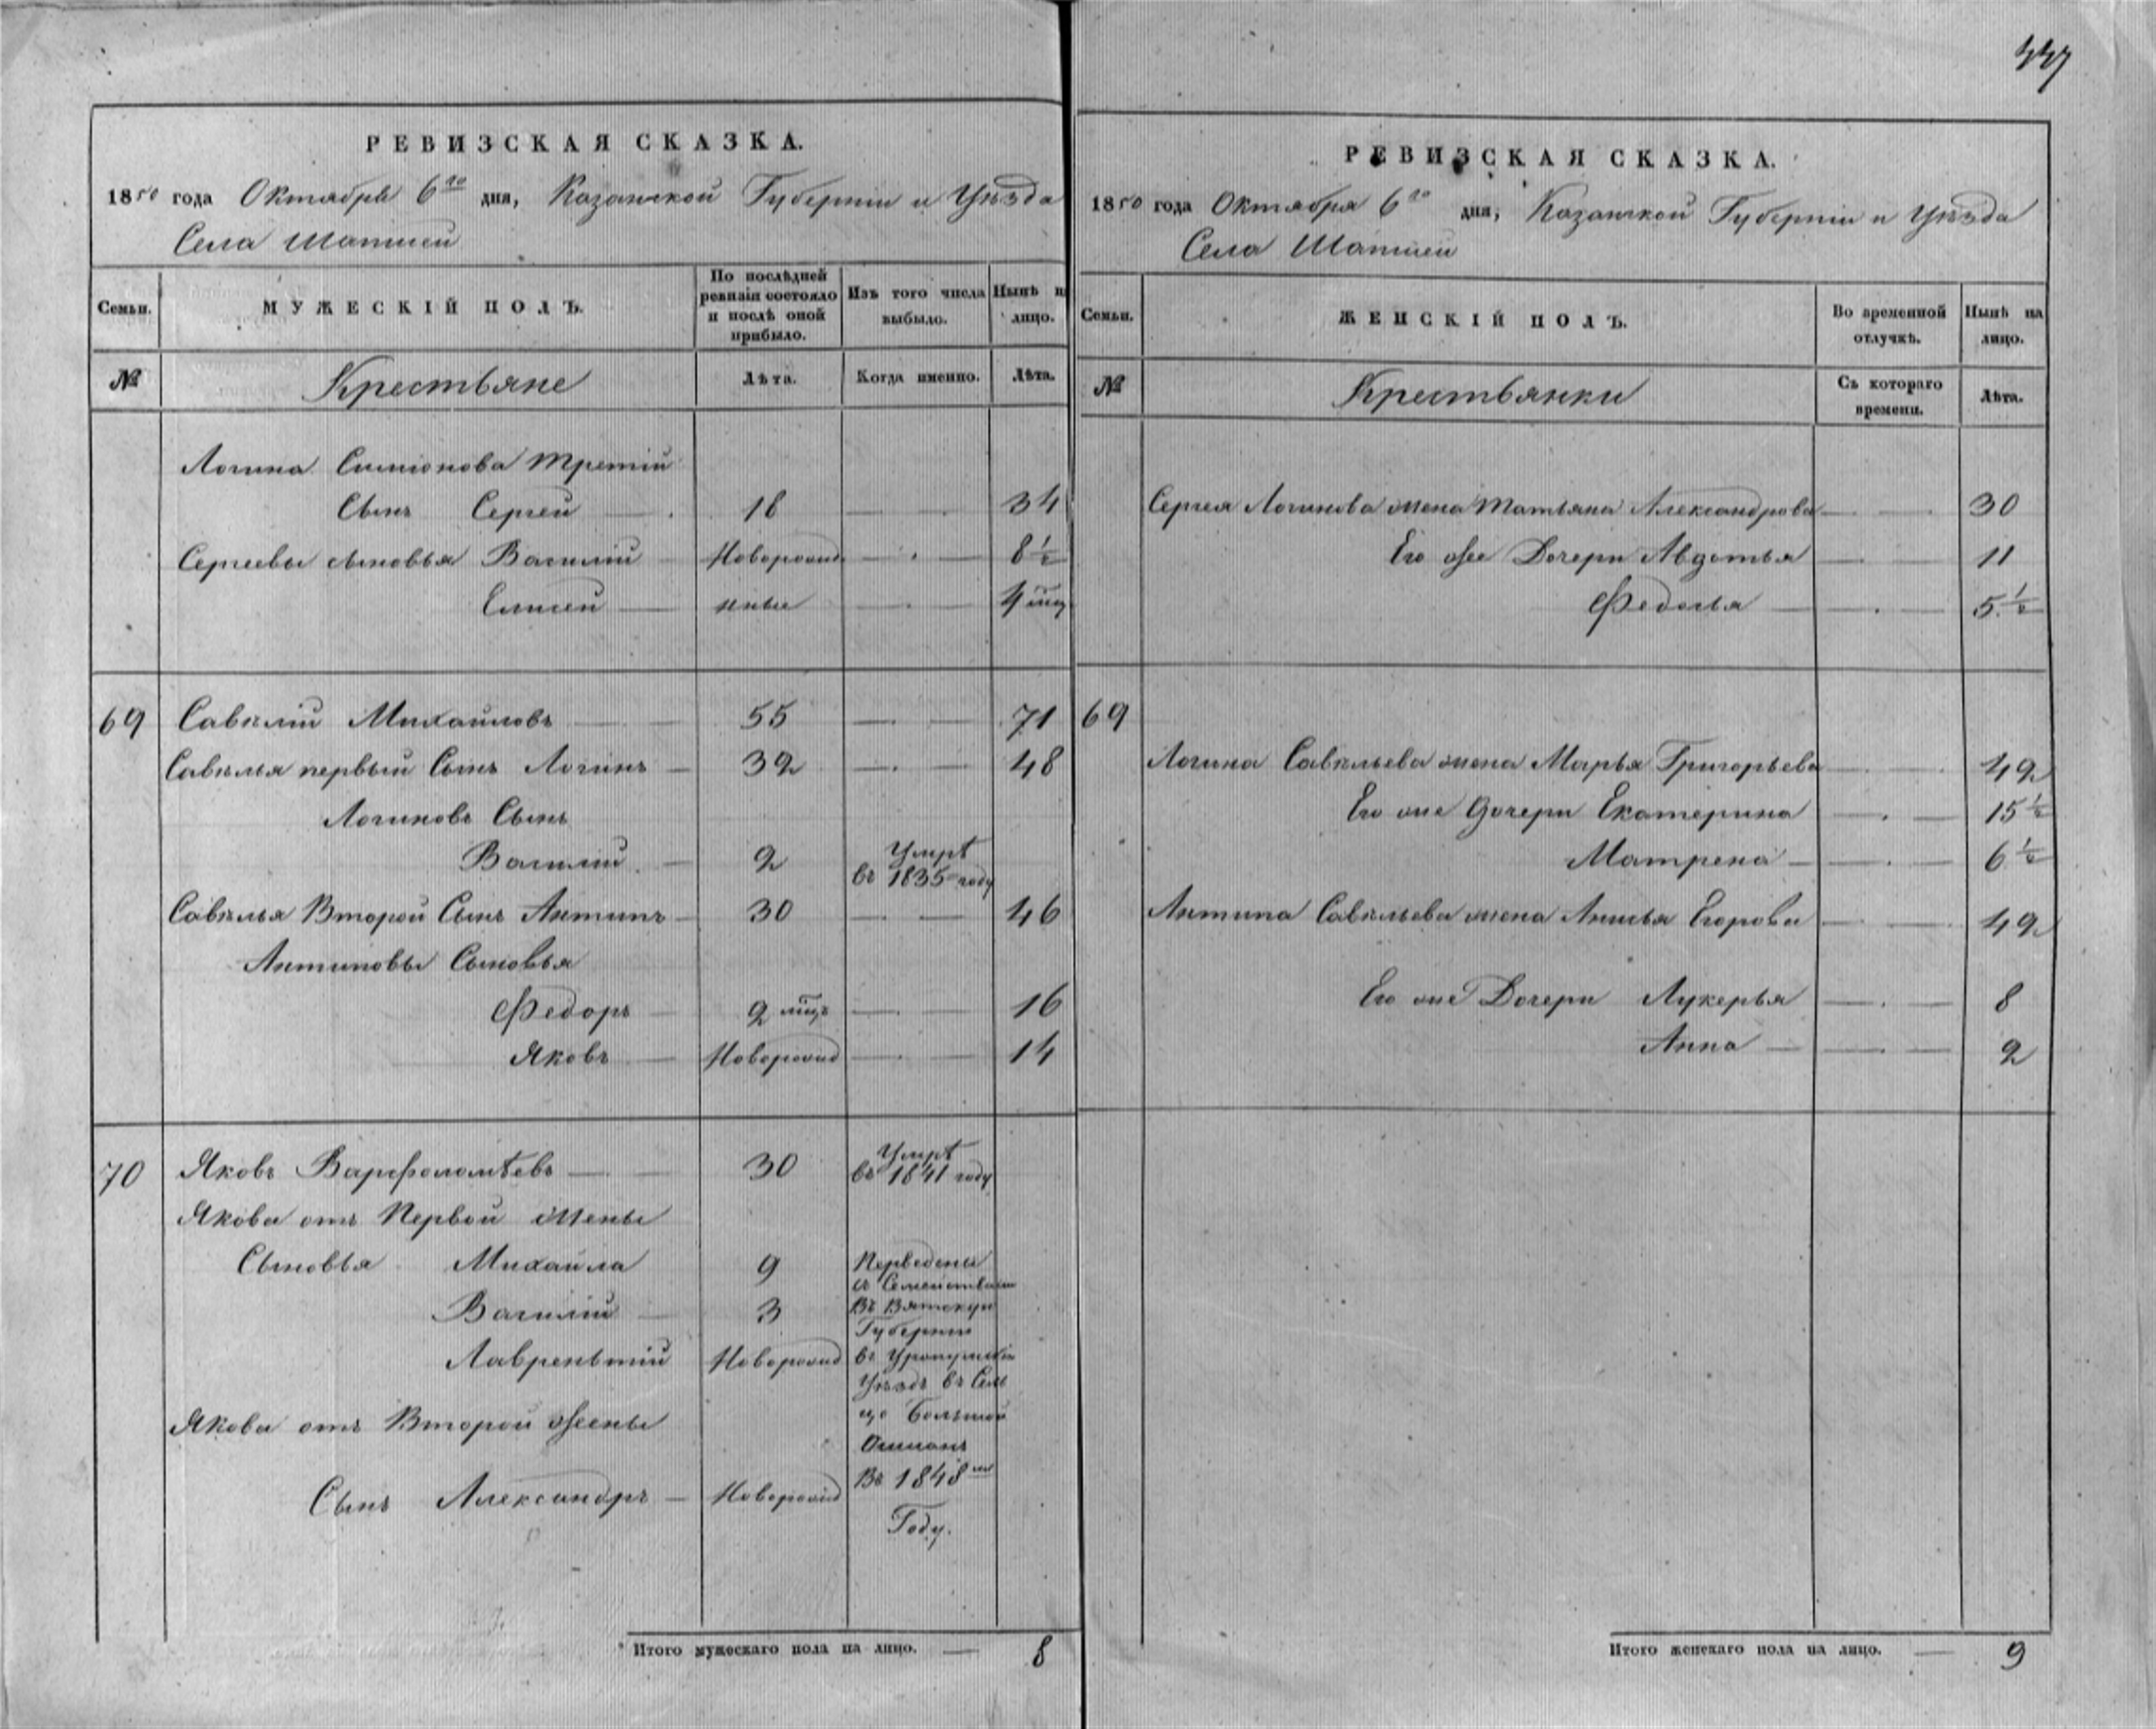 447
РЕВИЗСКАЯ СКАЗКА.
1850 года Октября 6го дня, Казанской Губерніи и Уѣзда
Села Шапшей
Семьи.
МУЖЕСКІЙ ПОЛЪ.
По послѣдней ревизіи состояло и послѣ оной прибыло.
Изъ того числа выбыло.
Нынѣ на лицо.
№
Крестьяне
Лѣта.
Когда именно.
Лѣта.
Логина Симіонова третій
Сынъ Сергей — 18 — 34
Сергеевы сыновья Василій Новорожд — 8 1/2
Елисей — енные — 4 мѣц
69 Савелій Михайловъ 55 — 71
Савелья первый Сынъ Логинъ — 32 — 48
Логиновъ Сынъ
Василій — 2 Умре въ 1835 году
Савелья Второй Сынъ Антипъ — 30 — 46
Антиповы Сыновья
Федоръ 2 мѣц — 16
Яковъ — Новорожд — 14
70 Яковъ Варфоломѣевъ — 30 Умре въ 1841 году
Якова отъ Первой жены
Сыновья Михайла 9
Василій — 3
Лаврентій Новорожд
Якова отъ Второй жены
Сынъ Александръ — Новорожд
Перведены
съ Семействомъ
Въ Вятскую
Губернію
въ Уржумскій
Уѣздъ въ Сель
цо Большой
Въ 1848м
Году.
Итого мужескаго пола на лицо. — 8
РЕВИЗСКАЯ СКАЗКА.
1850 года Октября 6го дня, Казанской Губерніи и Уѣзда
Села Шапшей
Семьи.
ЖЕНСКІЙ ПОЛЪ.
Во временной отлучкѣ.
Нынѣ на лицо.
№
Крестьянки
Съ котораго времени.
Лѣта.
Сергея Логинова жена Татьяна Александрова — 30
Его же Дочери Авдотья — 11
Федосья — 5 1/2
69
Логина Савельева жена Марья Григорьева — 49
Его же Дочери Екатерина — 15 1/2
Матрена — 6 1/2
Антипа Савельева жена Анисья Егорова — 49
Его же Дочери Лукерья — 8
Анна — 2
Итого женскаго пола на лицо. — 9